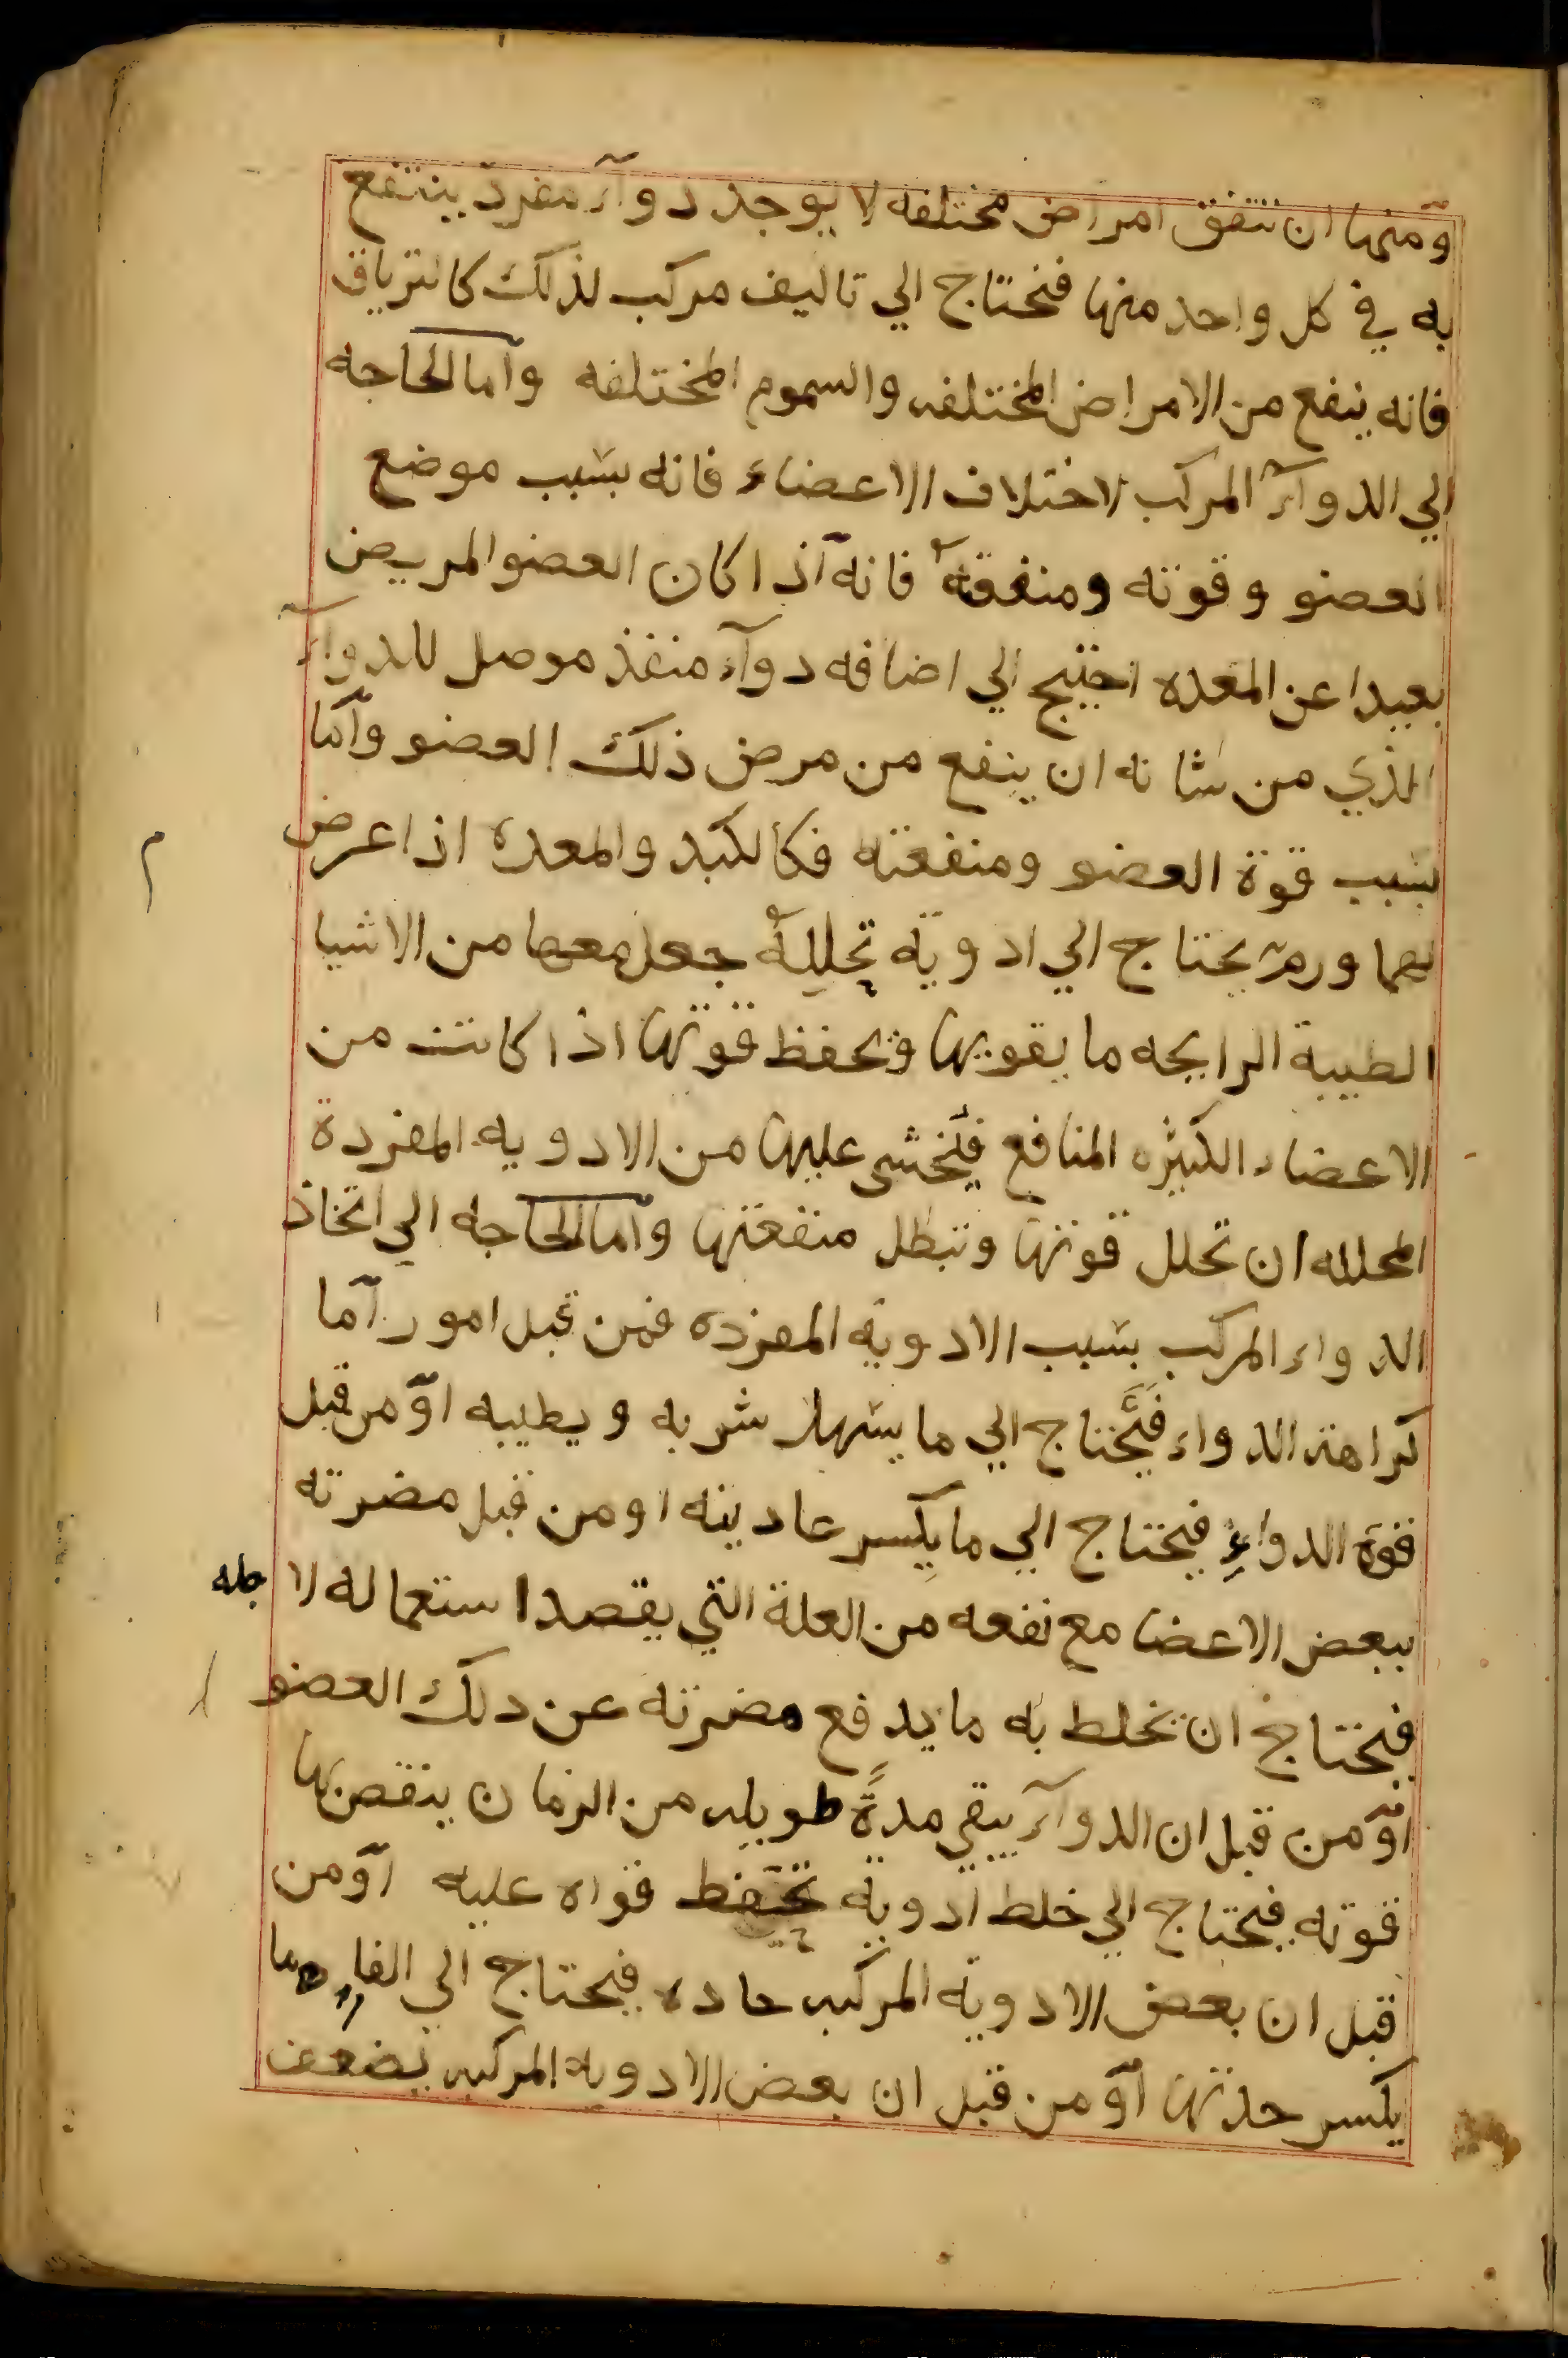 ومنها ان تتفق امراض مختلفه لا يوجد دوآء مفرد ينتفع
به في كل واحد منها فنحتاج الي تاليف مركب لذلك كالترياق
فانه ينفع من الامراض المختلفه والسموم المختلفه وآما الحاجه
الي الدوآء المركب لاختلاف الاعضاء فانه بسبب موضع
العضو وقوته ومنفعته فانه آذا كان العضو المريض
بعيدا عن المعده احتيج الي اضافه دوآء منفذ موصل للدوآء
الذي من شانه ان ينفع من مرض ذلك العضو وآما
بسبب قوة العضو ومنفعته فكالكبد والمعده اذا عرض
بهما ورم يحتاج الي ادوية تحلله جعل معها من الاشيا
الطيبة الرايحه ما يقويها ويحفظ قوتها اذا كانت من
الاعضاء الكثيره المنافع فيخشى عليها من الادويه المفردة
المحلله ان تحلل قوتها وتبطل منفعتها وآما الحاجه الي اتخاذ
الدواء المركب بسبب الادوية المفرده فمن قبل امور آما
كراهة الدواء فيحتاج الي ما يسهل شربه ويطيبه آو من قبل
قوة الدواء فيحتاج الي ما يكسر عاديته او من قبل مضرته
ببعض الاعضا مع نفعه من العلة التي يقصد استعماله لا جله
فيحتاج ان يخلط به ما يدفع مضرته عن دلك العضو
آو من قبل ان الدوآء يبقي مدةً طويله من الزمان ينقص بها
قوته فيحتاج الي خلط ادوية تحفظ قواه عليه آو من
قبل ان بعض الادوية المركبه حاده فيحتاج الي ما
يكسر حدتها آو من قبل ان بعض الادويه المركبه يضعف